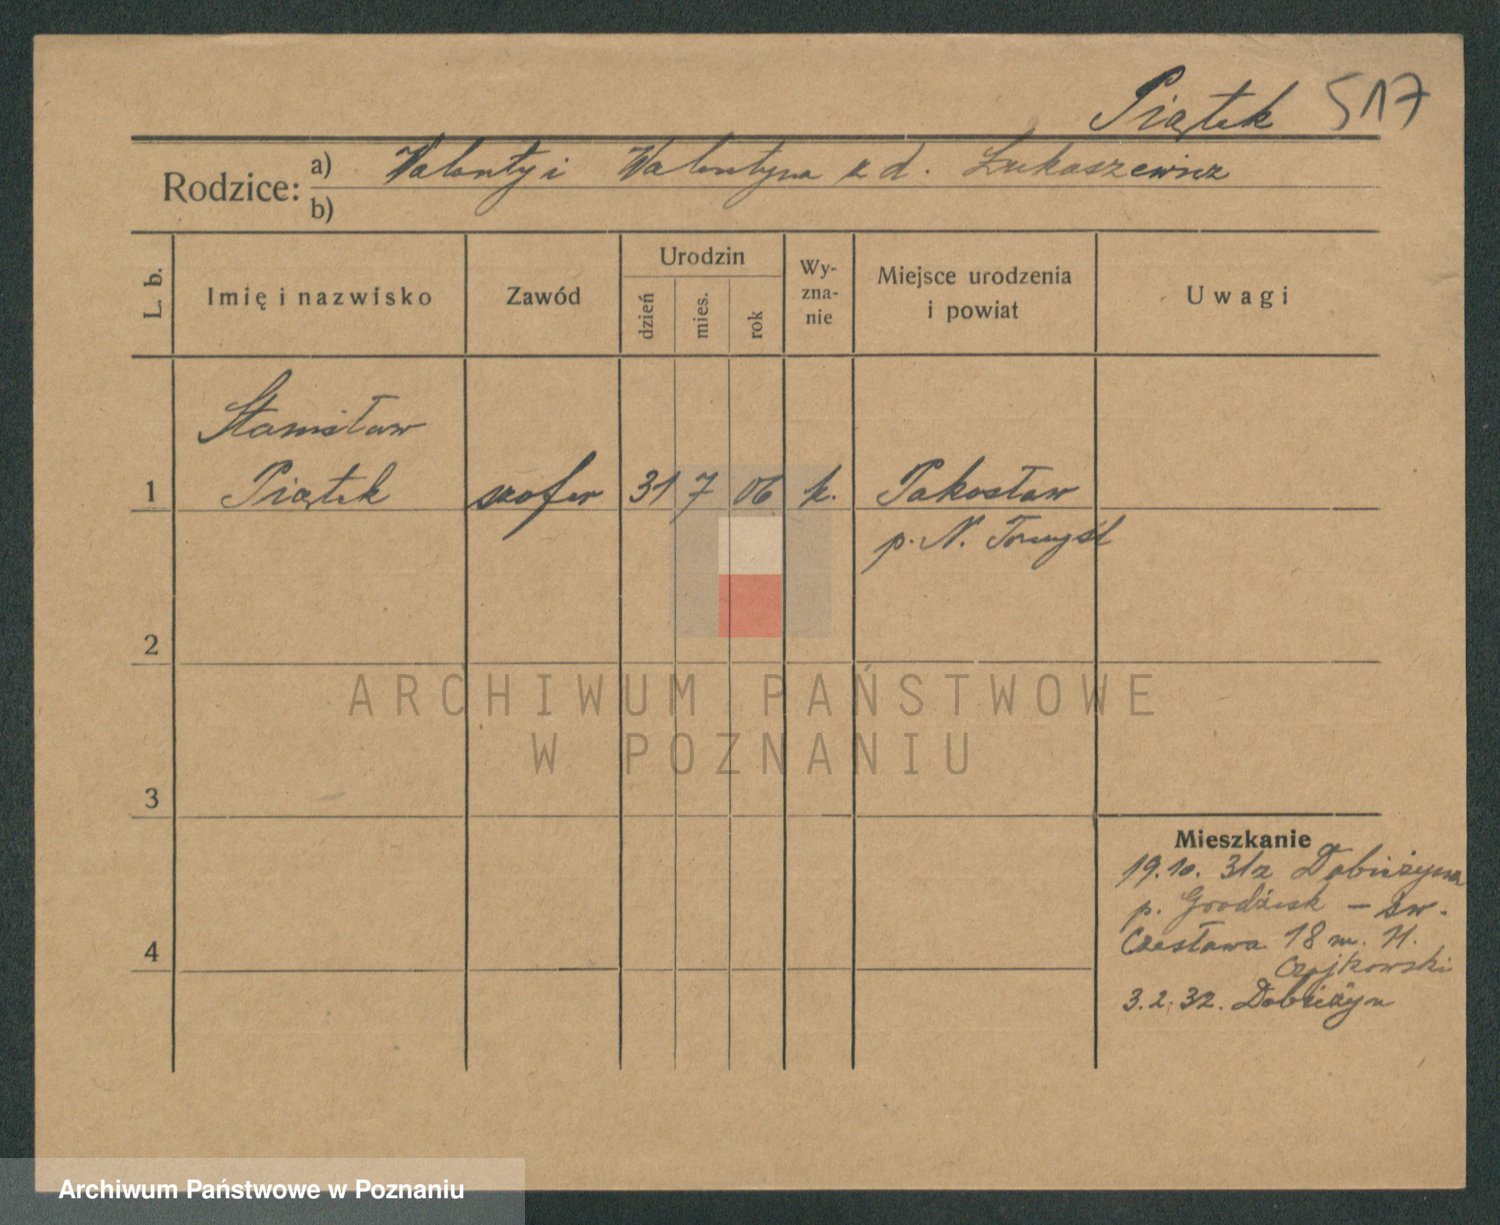 Piątek 517
Rodzice: a) Walenty i Walentyna z d. Łukaszewicz
b)
L. b. Imię i nazwisko Zawód Urodzin dzień mies. rok Wy-zna-nie Miejsce urodzenia i powiat Uwagi
Stanisław
1 Piątek szofer 31 7 06 k. Pakosław
p. N. Tomyśl
2
ARCHIWUM PAŃSTWOWE
W POZNANIU
3
Mieszkanie
19.10. 31 z Dobieżyna
p. Grodzisk – św.
Czesława 18 m. 11.
Czajkowski
4
3.2.32. Dobieżyn
Archiwum Państwowe w Poznaniu